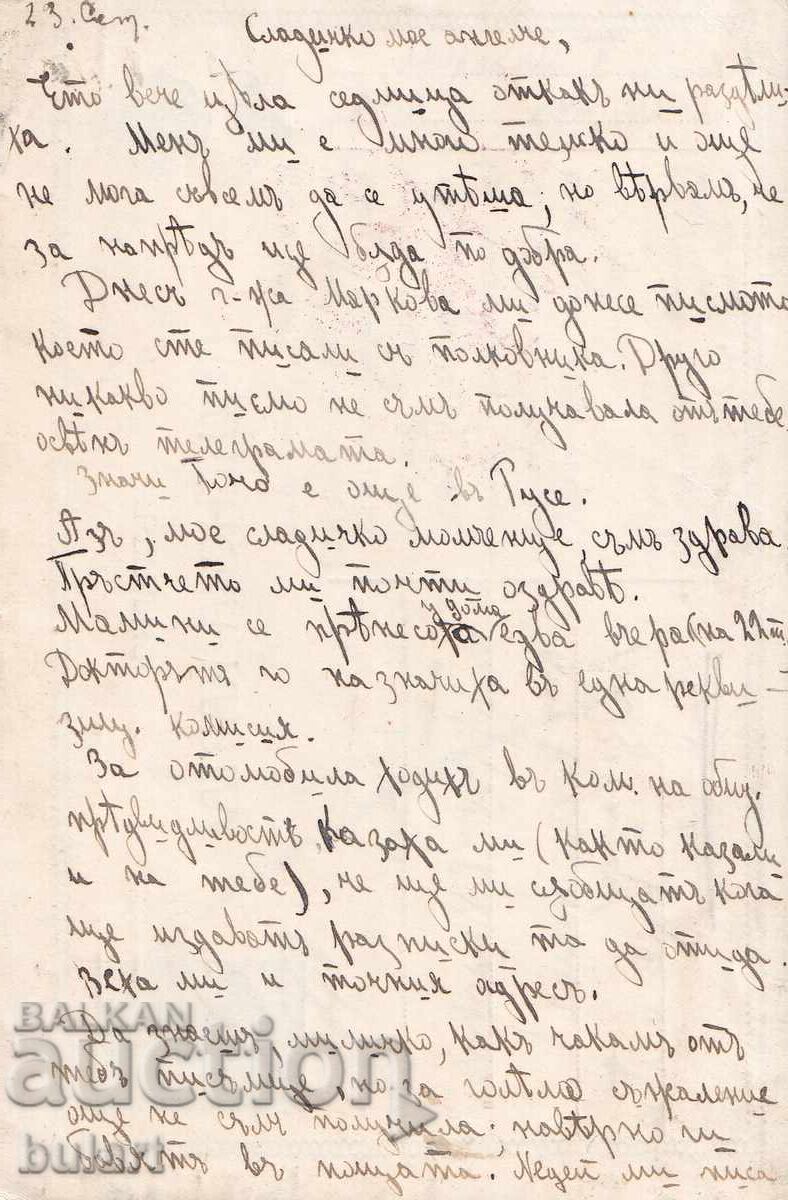 23. Сеп.
Сладичко мое ангелче,
Ето вече цѣла седмица откакъ ни раздѣли-
ха. Менъ ми е много тежко и още
не мога съвсемъ да се утѣша, но вѣрвамъ, че
за напрѣдъ ще бѫда по добра.
Днесъ г-жа Маркова ми донесе писмото
което сте писали съ полковника. Друго
никакво писмо не съмъ получавала отъ тебе
освѣнъ телеграмата.
Значи е още въ Русе.
Азъ, мое сладичко момченце, съмъ здрава.
Пръстчето ми почти оздравѣ.
Мамини се прѣнесоха у дома едва вчера (на 22т.
Докторътъ го назначиха въ една рекви-
зиц. комисия.
За отомобила ходихъ въ ком. на общ.
прѣдвидливость, казаха ми (както казали
и на тебе), че ще ми съобщатъ кога
ще издаватъ разписки та да отида.
Зеха ми и точния адресъ.
Да знаешъ, миличко, какъ чакамъ отъ
тебъ писъмце, но за голѣмо съжаление
още не съмъ получила; навѣрно ги
бавятъ въ пощата. Недей ми писа
BALKAN
auction
bulart